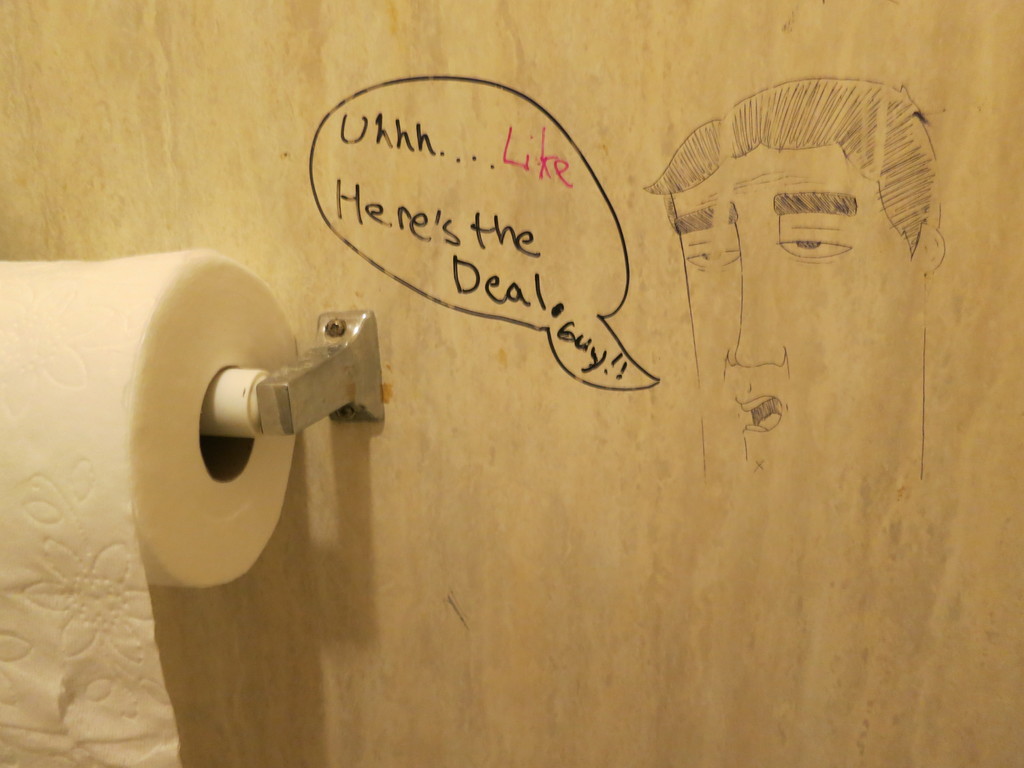 Uhhh.... Like
Here's the
Deal.
Guy!!